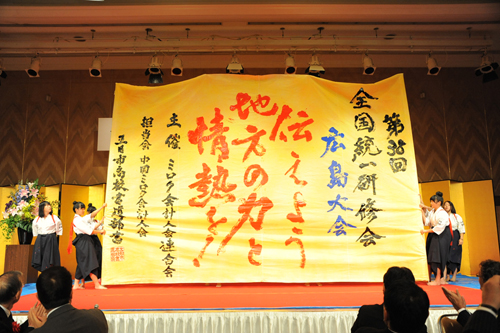 第36回
全国統一研修会
広島大会
伝えよう
地方の力と
情熱を!
主催 ミロク会計人会連合会
担当会 中国ミロク会計人会
廿日市高校書道部書